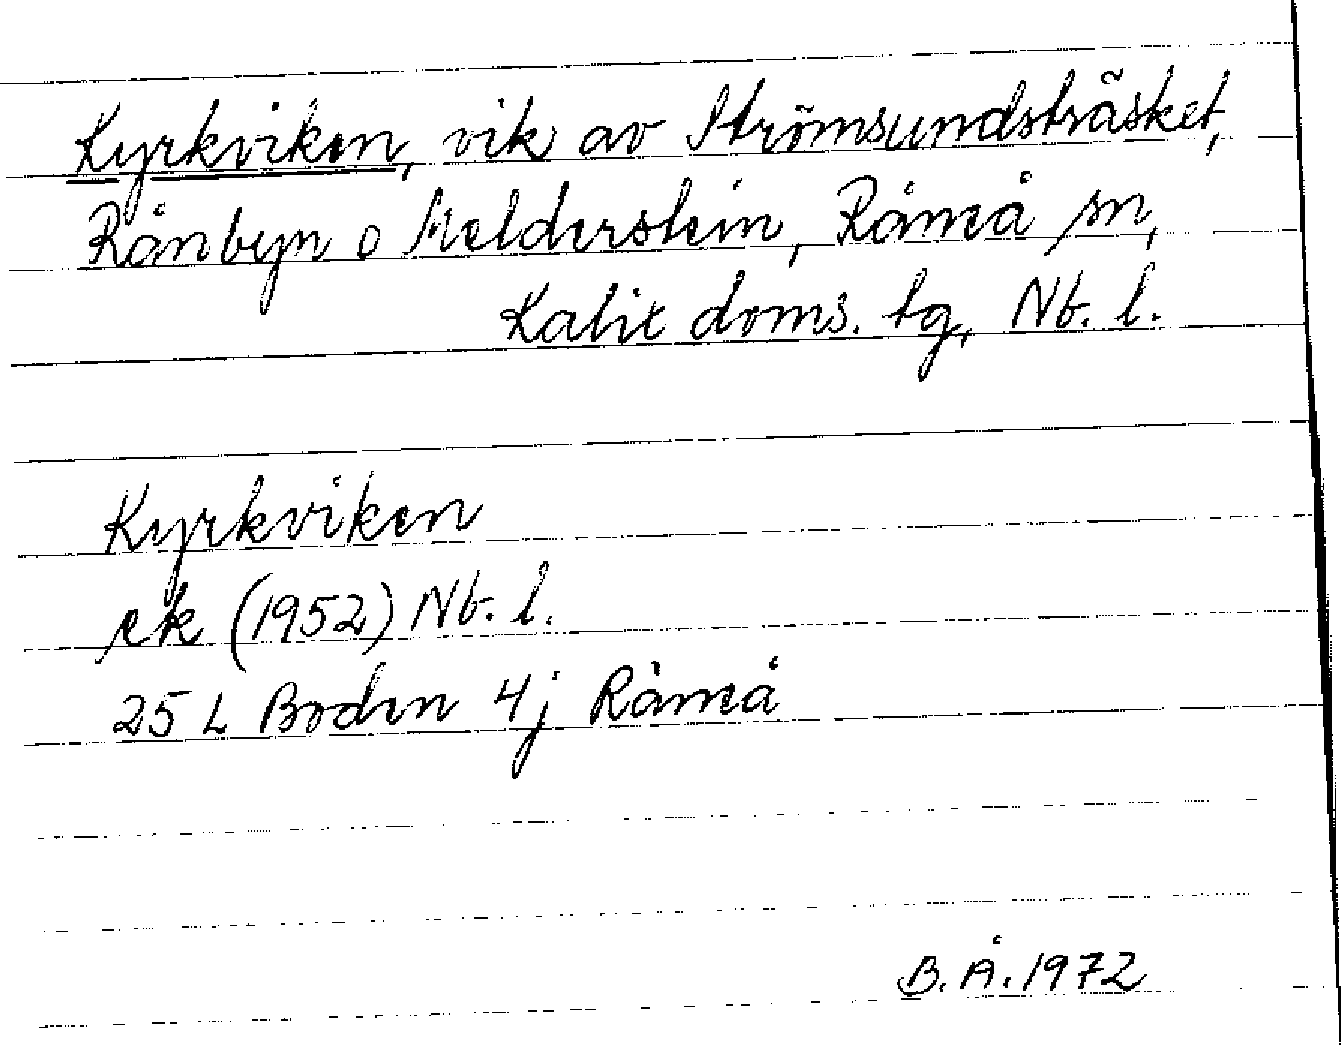 Kyrkviken, vik av Strömsundsträsket,
Rånbyn o Melderstein, Råneå sn,
Kalix doms. tg, Nb. l.
Kyrkviken
ek (1952) Nb. l.
25 L Boden 4j Råneå
B. Å. 1972